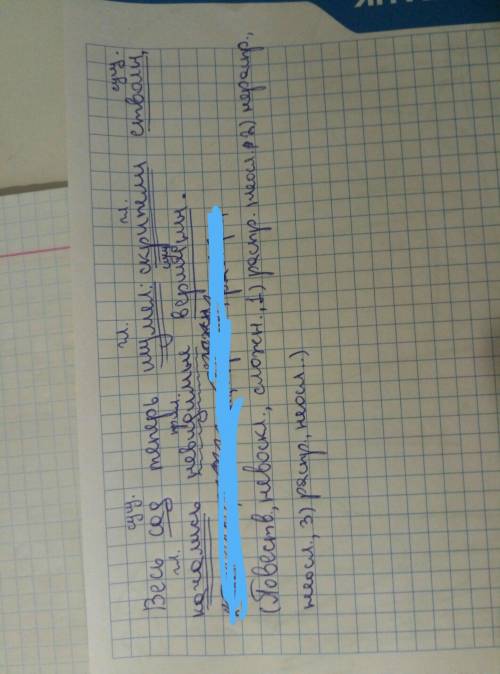 сущ. гл. гл. сущ.
Весь сад теперь шумел: скрипели стволы,
гл. прил. сущ.
качались невидимые вершины.
(Повеств., невоскл., сложн., 1) распр., неосл., 2) нераспр.,
неосл., 3) распр., неосл.)